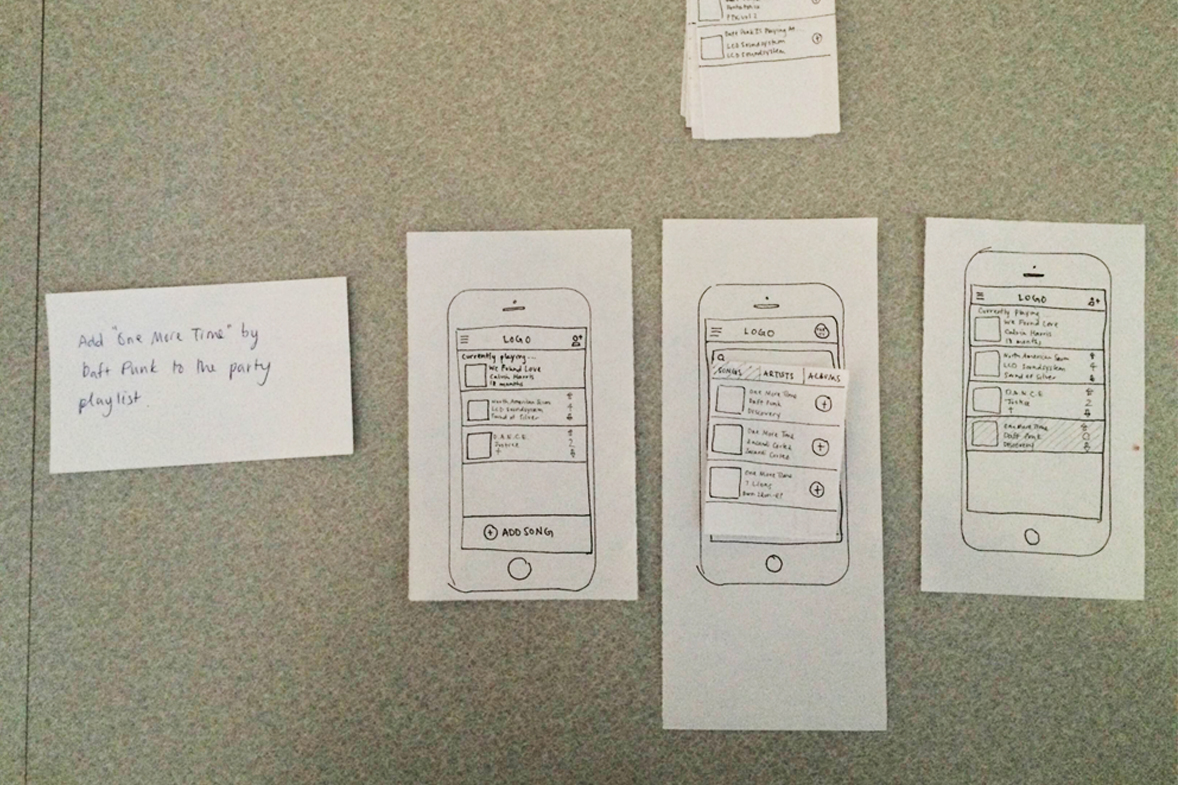 Daft Punk Is Playing At
LCD Soundsystem
LCD Soundsystem
Add "One More Time" by
Daft Punk to the party
playlist.
LOGO
Currently playing...
We Found Love
Calvin Harris
18 months
North American Scum
LCD Soundsystem
Sound of Silver
4
D.A.N.C.E
Justice
†
2
+ ADD SONG
LOGO
SONGS ARTISTS ALBUMS
One More Time
Daft Punk
Discovery
+
One More Time
+
One More Time
+
LOGO
Currently Playing
We Found Love
Calvin Harris
18 months
North American Scum
LCD Soundsystem
Sound of Silver
4
D.A.N.C.E
Justice
†
2
One More Time
Daft Punk
Discovery
0